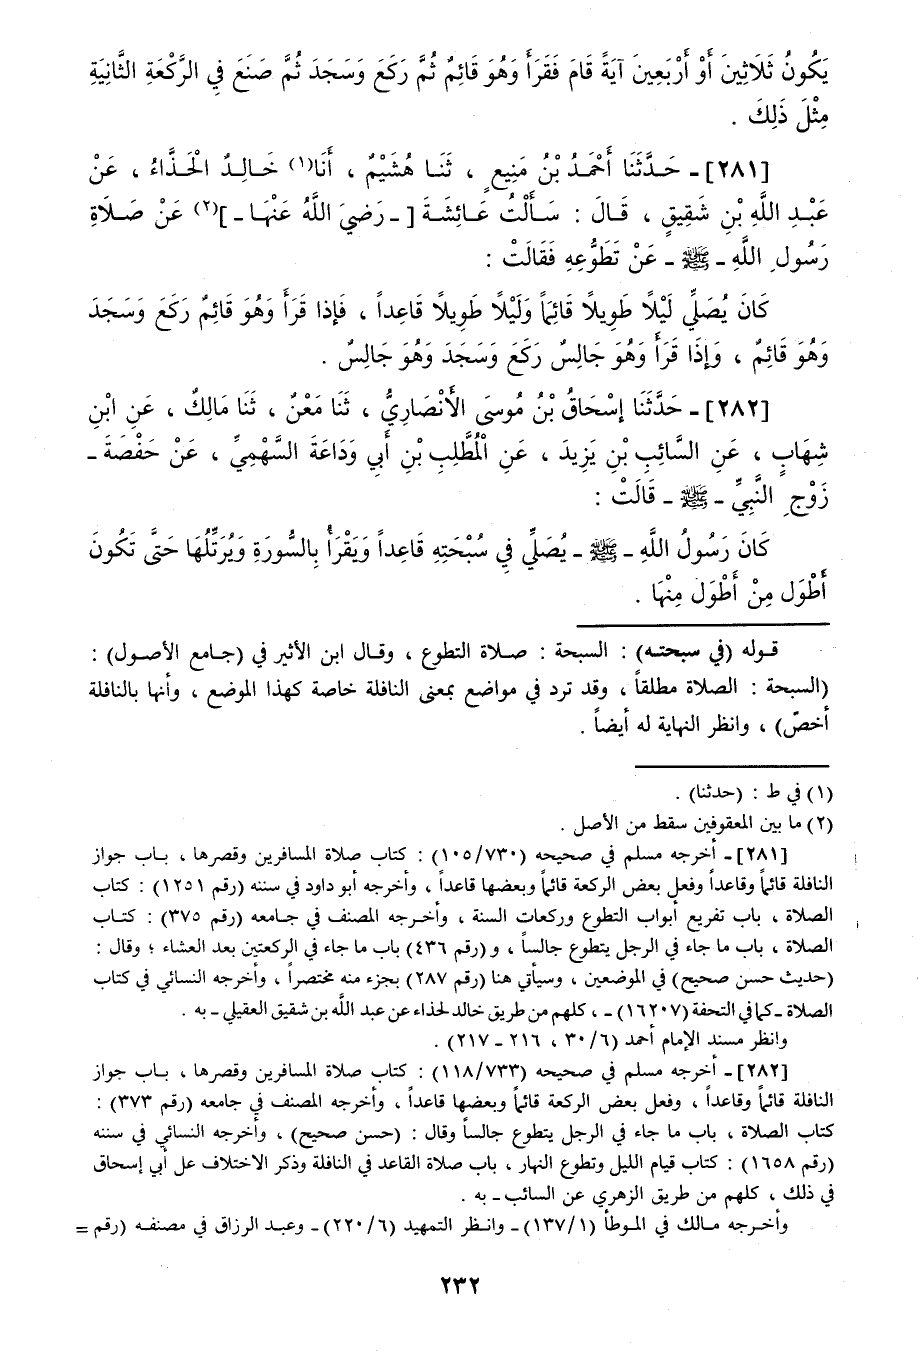 يَكُونُ ثَلَاثِينَ أَوْ أَرْبَعِينَ آيَةً قَامَ فَقَرَأَ وَهُوَ قَائِمٌ ثُمَّ رَكَعَ وَسَجَدَ ثُمَّ صَنَعَ فِي الرَّكْعَةِ الثَّانِيَةِ
مِثْلَ ذَلِكَ .
[٢٨١] ـ حَدَّثَنَا أَحْمَدُ بْنُ مَنِيعٍ ، ثَنَا هُشَيْمٌ ، أَنَا(١) خَالِدٌ الْحَذَّاءُ ، عَنْ
عَبْدِ اللَّهِ بْنِ شَقِيقٍ ، قَالَ : سَأَلْتُ عَائِشَةَ [ ـ رَضِيَ اللَّهُ عَنْهَا ـ ](٢) عَنْ صَلَاةِ
رَسُولِ اللَّهِ ـ ﷺ ـ عَنْ تَطَوُّعِهِ فَقَالَتْ :
كَانَ يُصَلِّي لَيْلًا طَوِيلًا قَائِمًا وَلَيْلًا طَوِيلًا قَاعِداً ، فَإِذا قَرَأَ وَهُوَ قَائِمٌ رَكَعَ وَسَجَدَ
وَهُوَ قَائِمٌ ، وَإِذَا قَرَأَ وَهُوَ جَالِسٌ رَكَعَ وَسَجَدَ وَهُوَ جَالِسٌ .
[٢٨٢] ـ حَدَّثَنَا إِسْحَاقُ بْنُ مُوسَى الأَنْصَارِيُّ ، ثَنَا مَعْنٌ ، ثَنَا مَالِكٌ ، عَنِ ابْنِ
شِهَابٍ ، عَنِ السَّائِبِ بْنِ يَزِيدَ ، عَنِ الْمُطَّلِبِ بْنِ أَبِي وَدَاعَةَ السَّهْمِيِّ ، عَنْ حَفْصَةَ ـ
زَوْجِ النَّبِيِّ ـ ﷺ ـ قَالَتْ :
كَانَ رَسُولُ اللَّهِ ـ ﷺ ـ يُصَلِّي فِي سُبْحَتِهِ قَاعِداً وَيَقْرَأُ بِالسُّورَةِ وَيُرَتِّلُهَا حَتَّى تَكُونَ
أَطْوَلَ مِنْ أَطْوَلَ مِنْهَا .
قوله (في سبحته) : السبحة : صلاة التطوع ، وقال ابن الأثير في (جامع الأصول) :
(السبحة : الصلاة مطلقاً ، وقد ترد في مواضع بمعنى النافلة خاصة كهذا الموضع ، وأنها بالنافلة
أخصّ) ، وانظر النهاية له أيضاً .
(١) في ط : (حدثنا) .
(٢) ما بين المعقوفين سقط من الأصل .
[٢٨١] ـ أخرجه مسلم في صحيحه (١٠٥/٧٣٠) : كتاب صلاة المسافرين وقصرها ، باب جواز
النافلة قائماً وقاعداً وفعل بعض الركعة قائماً وبعضها قاعداً ، وأخرجه أبو داود في سننه (رقم ١٢٥١) : كتاب
الصلاة ، باب تفريع أبواب التطوع وركعات السنة ، وأخرجه المصنف في جامعه (رقم ٣٧٥) : كتاب
الصلاة ، باب ما جاء في الرجل يتطوع جالساً ، و(رقم ٤٣٦) باب ما جاء في الركعتين بعد العشاء ؛ وقال :
(حديث حسن صحيح) في الموضعين ، وسيأتي هنا (رقم ٢٨٧) بجزء منه مختصراً ، وأخرجه النسائي في كتاب
الصلاة ـ كما في التحفة (١٦٢٠٧) ـ ، كلهم من طريق خالد لحذاء عن عبد اللَّه بن شقيق العقيلي ـ به .
وانظر مسند الإمام أحمد (٣٠/٦ ، ٢١٦ ـ ٢١٧) .
[٢٨٢] ـ أخرجه مسلم في صحيحه (١١٨/٧٣٣) : كتاب صلاة المسافرين وقصرها ، باب جواز
النافلة قائماً وقاعداً ، وفعل بعض الركعة قائماً وبعضها قاعداً ، وأخرجه المصنف في جامعه (رقم ٣٧٣) :
كتاب الصلاة ، باب ما جاء في الرجل يتطوع جالساً وقال : (حسن صحيح) ، وأخرجه النسائي في سننه
(رقم ١٦٥٨) : كتاب قيام الليل وتطوع النهار ، باب صلاة القاعد في النافلة وذكر الاختلاف عل أبي إسحاق
في ذلك ، كلهم من طريق الزهري عن السائب ـ به .
وأخرجه مالك في الموطأ (١٣٧/١) ـ وانظر التمهيد (٢٢٠/٦) ـ وعبد الرزاق في مصنفه (رقم =
٢٣٢